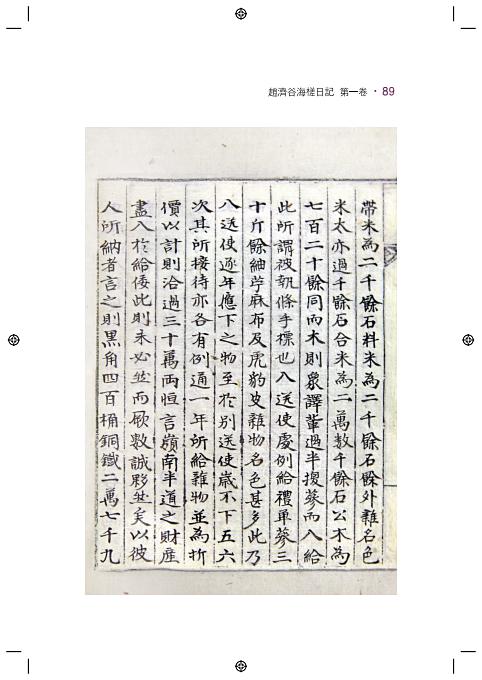 趙濟谷海槎日記 第一卷 · 89
帶米為二千餘石料米為二千餘石餘外雜名色
米太亦過千餘石合米為二萬數千餘石公木為
七百二十餘同而木則衆譯輩過半授蔘而入給
此所謂被執條手標也八送使處例給禮單蔘三
十斤餘紬苧麻布及虎豹皮雜物名色甚多此乃
八送使逐年應下之物至扵別送使歲不下五六
次其所接待亦各有例通一年所給雜物並為折
價以計則洽過三十萬兩恒言嶺南半道之財産
盡入扵給倭此則未必然而厥數誠夥然矣以彼
人所納者言之則黑角四百桶銅鐵二萬七千九